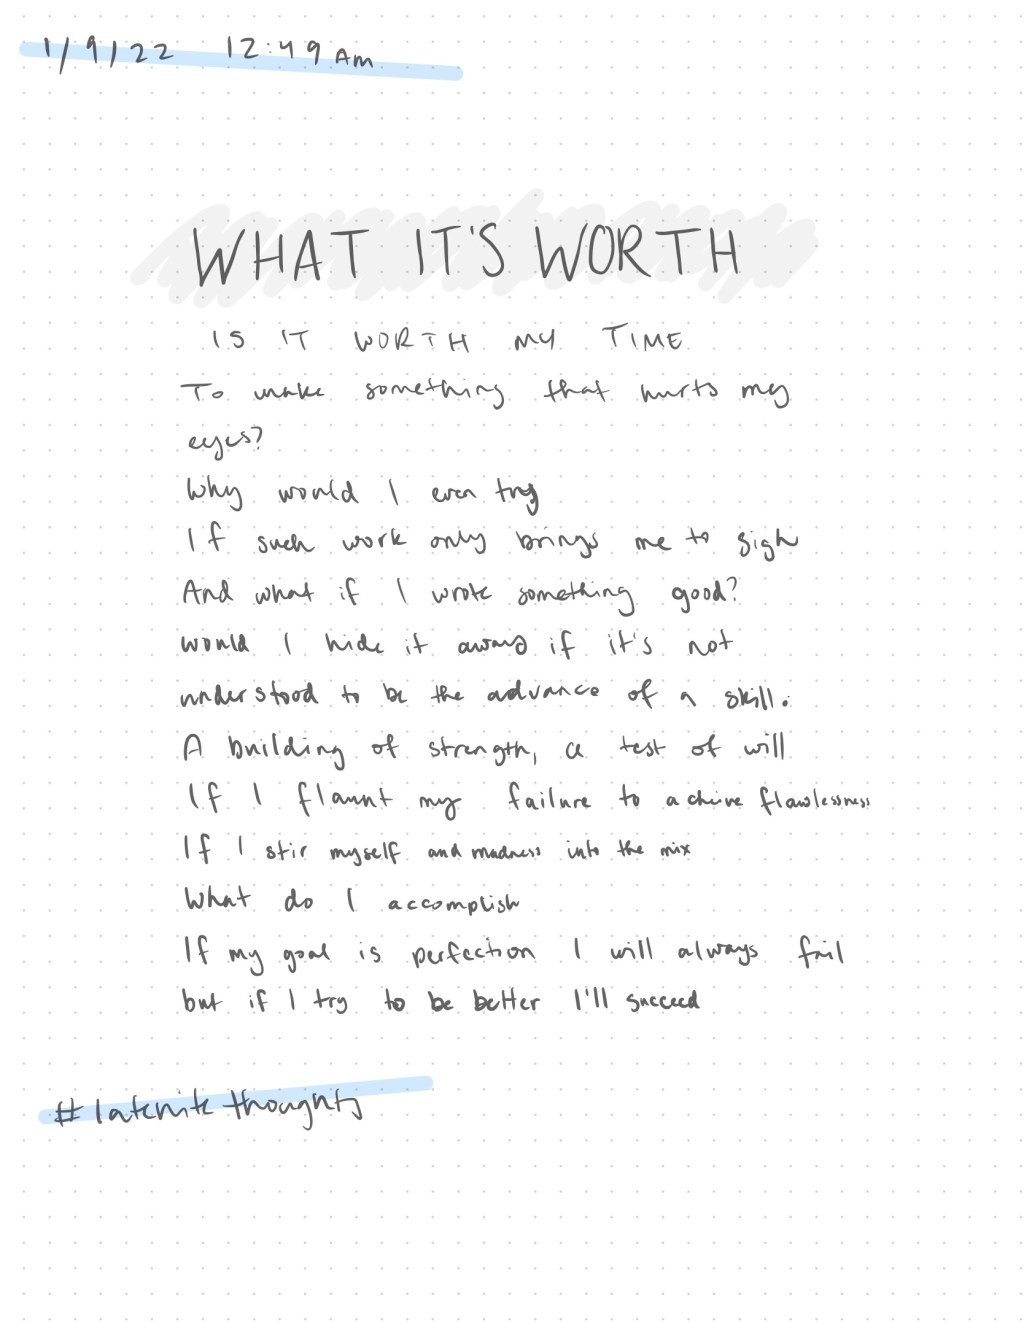 1/9/22 12:49 AM
WHAT IT'S WORTH
IS IT WORTH MY TIME
To make something that hurts my
eyes?
Why would I even try
If such work only brings me to sigh
And what if I wrote something good?
would I hide it away if it's not
understood to be the advance of a skill.
A building of strength, a test of will
If I flaunt my failure to achive flawlessness
If I stir myself and madness into the mix
What do I accomplish
If my goal is perfection I will always fail
but if I try to be better I'll succeed
#latenite thoughts